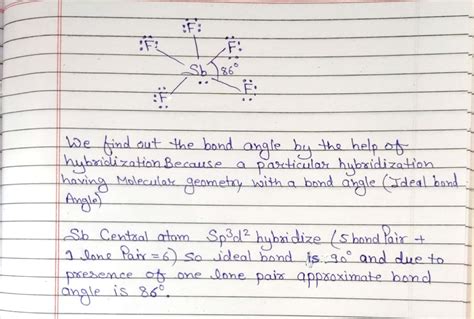 :F:
:F: F:
Sb 86°
:F F:
We find out the bond angle by the help of
hybridization Because a particular hybridization
having Molecular geometry with a bond angle (Ideal bond
Angle)
Sb Central atom Sp³d² hybridize (5 bond Pair +
1 lone Pair = 6) So ideal bond is 90° and due to
presence of one lone pair approximate bond
angle is 86°.